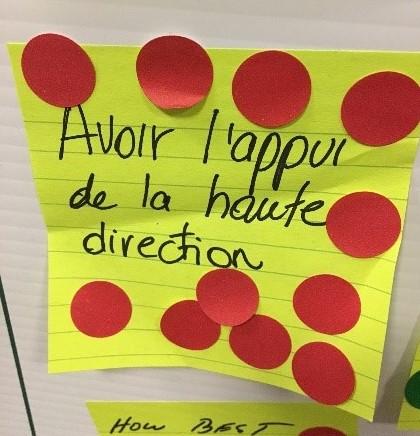 Avoir l'appui
de la haute
direction
How BEST